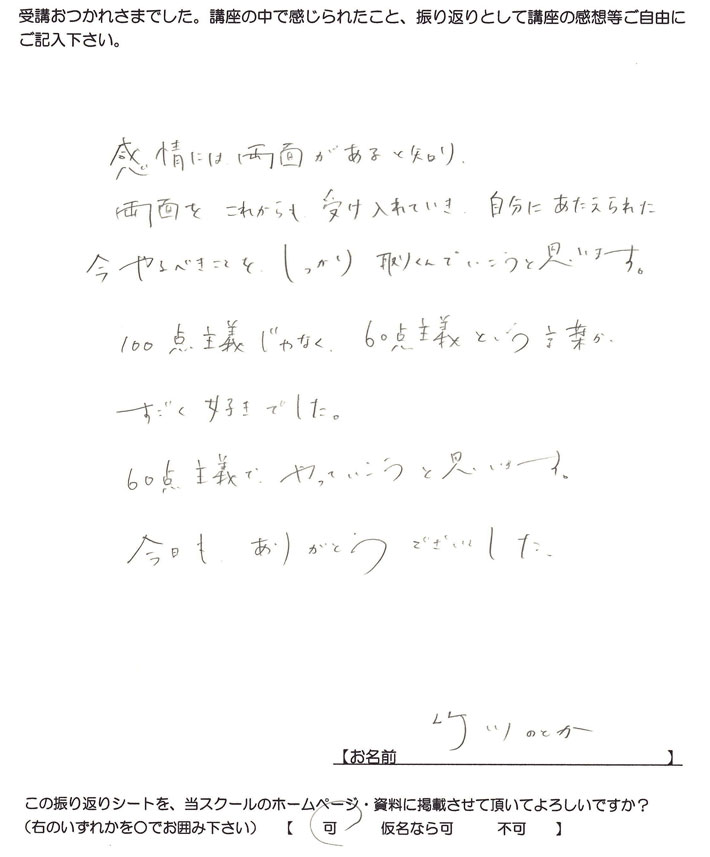 受講おつかれさまでした。講座の中で感じられたこと、振り返りとして講座の感想等ご自由に
ご記入下さい。
感情には両面があると知り、
両面を これからも 受け入れていき、自分に あたえられた
今 やるべきことを、しっかり 取りくんでいこうと思います。
100点主義じゃなく、60点主義という言葉が、
すごく 好きでした。
60点主義で、やっていこうと思います。
今日も、ありがとう ございました。
竹川のどか
【お名前 】
この振り返りシートを、当スクールのホームページ・資料に掲載させて頂いてよろしいですか?
(右のいずれかを〇でお囲み下さい) 【 可 仮名なら可 不可 】